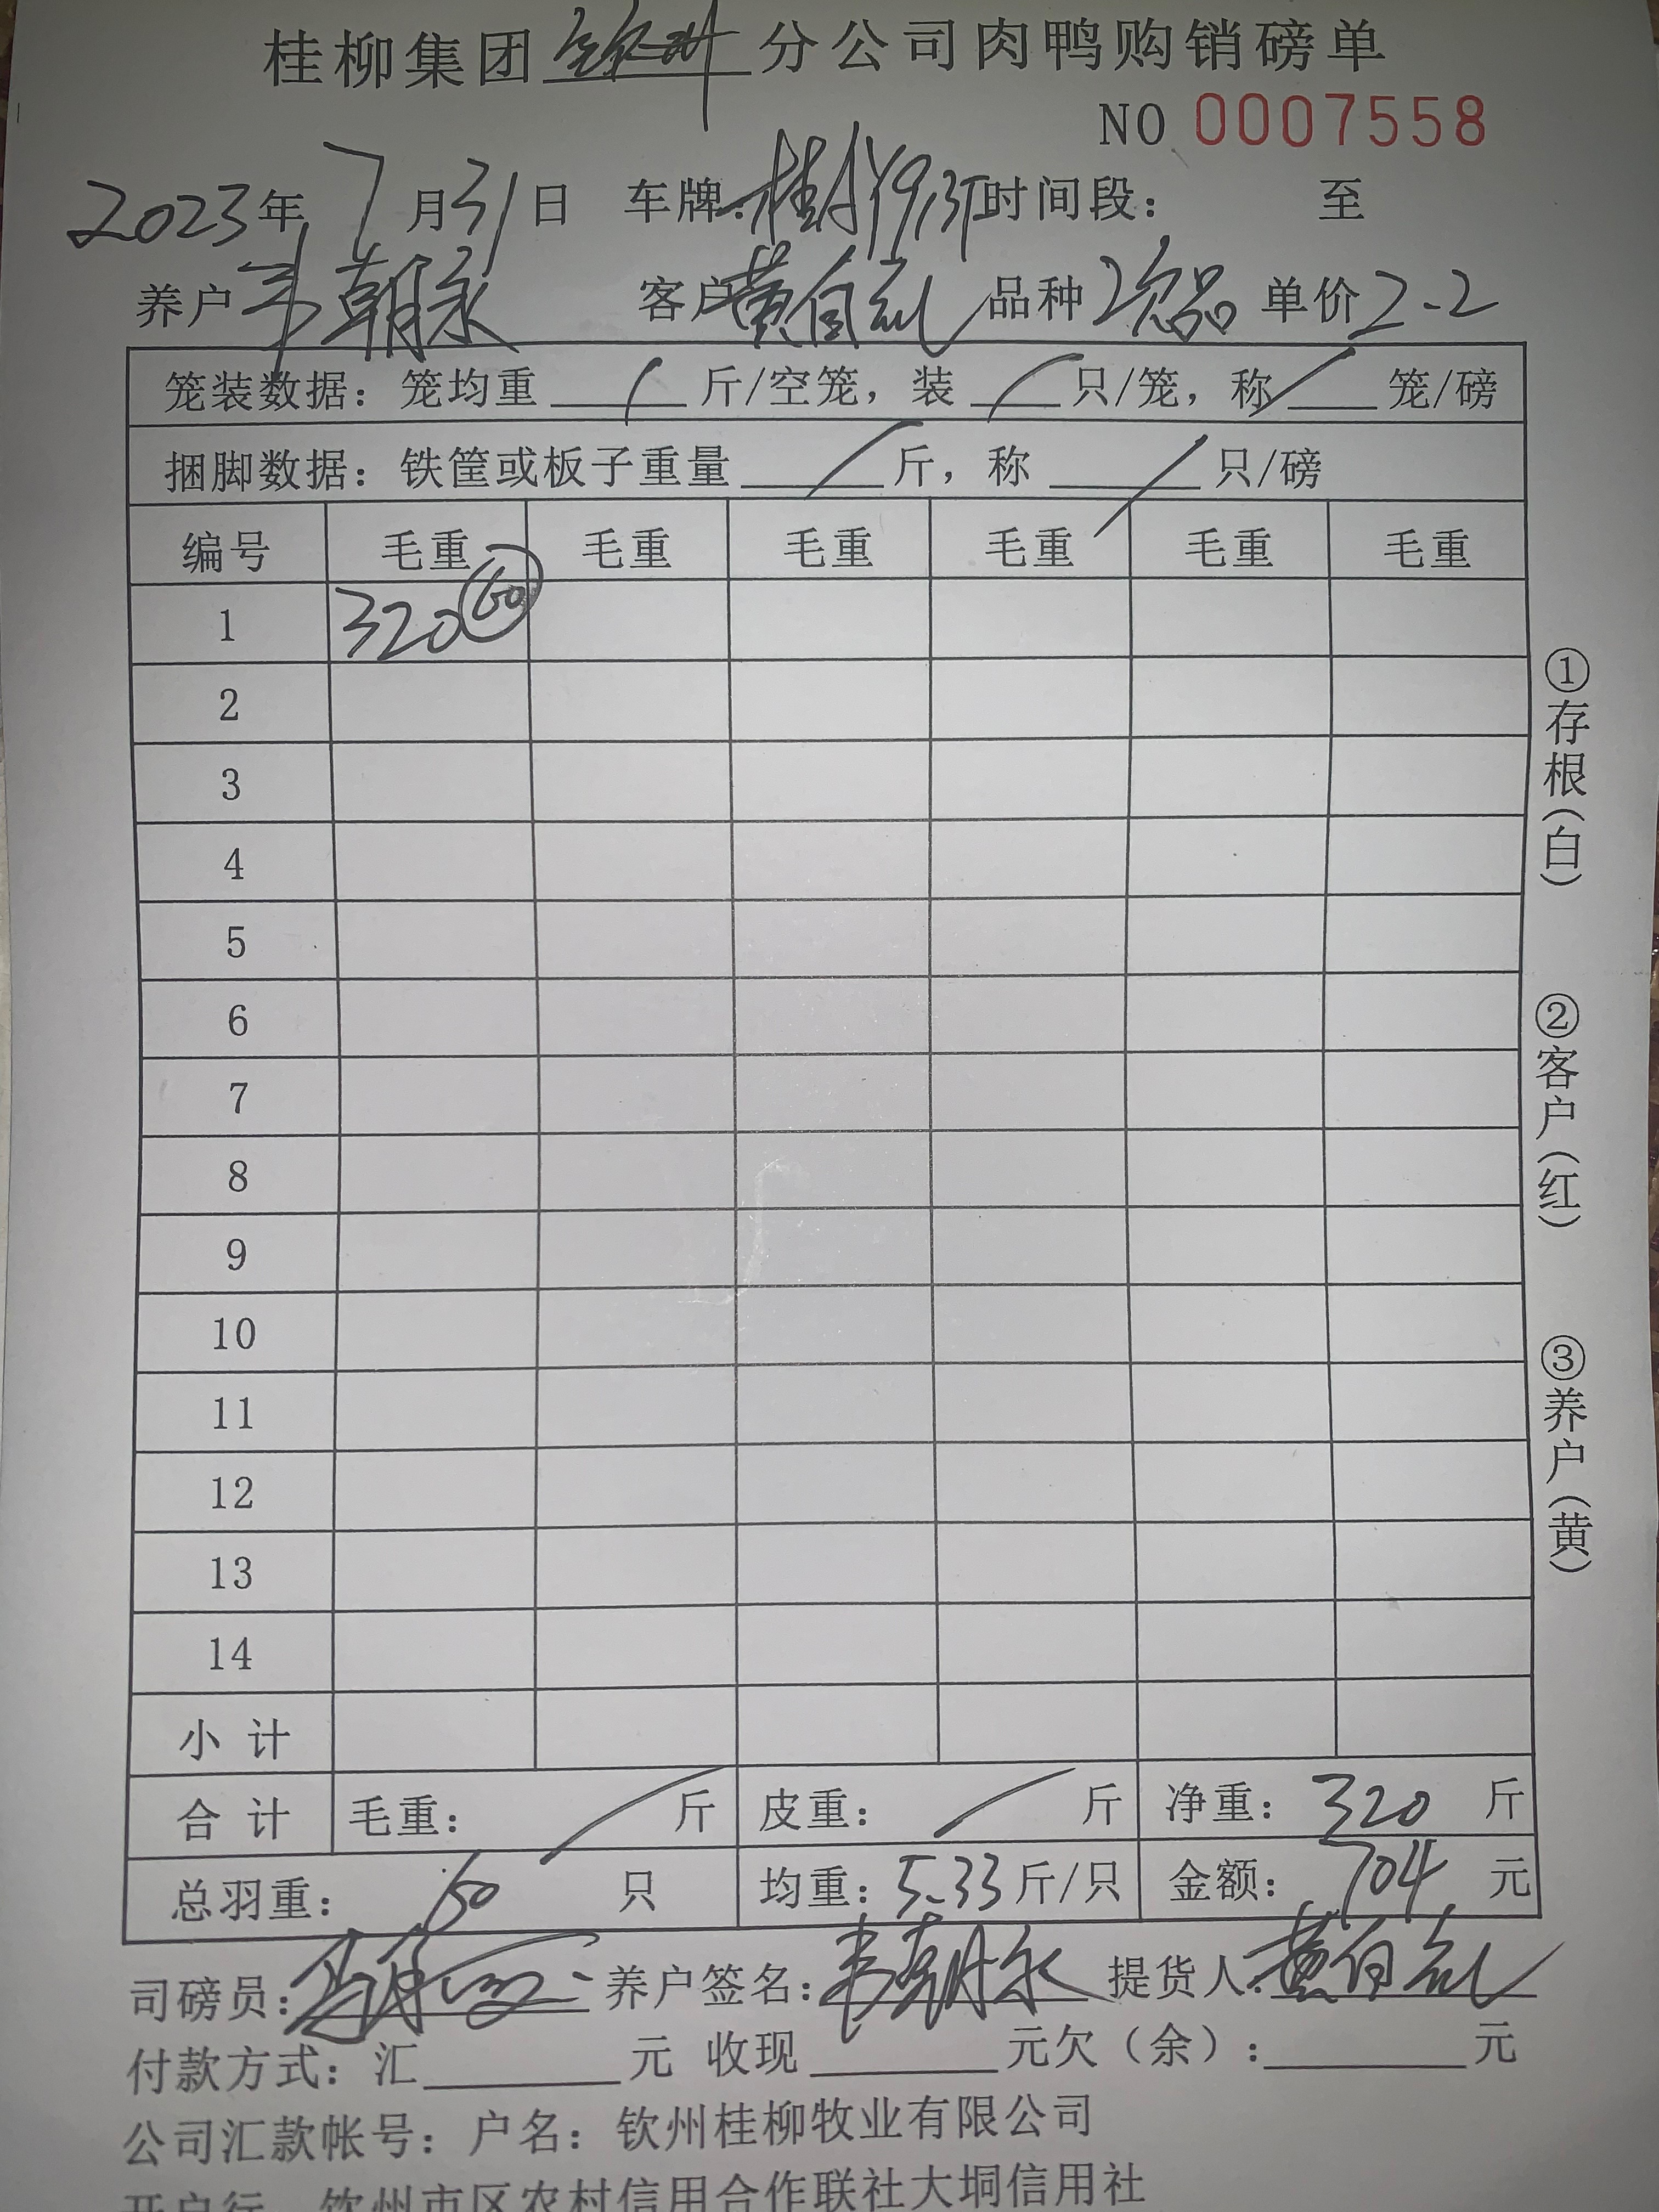 桂柳集团钦州分公司肉鸭购销磅单
NO 0007558
2023年 7月31日 车牌: 时间段: 至
养户 韦朝永 客户 黄自 品种 次品 单价 2.2
笼装数据: 笼均重 / 斤/空笼, 装 / 只/笼, 称 / 笼/磅
捆脚数据: 铁筐或板子重量 / 斤, 称 / 只/磅
编号 毛重 毛重 毛重 毛重 毛重 毛重
1 320 60
2
3
4
5
6
7
8
9
10
11
12
13
14
小计
合计 毛重: / 斤 皮重: / 斤 净重: 320 斤
总羽重: 60 只 均重: 5.33 斤/只 金额: 704 元
司磅员: 养户签名: 韦朝永 提货人: 黄自
付款方式: 汇 元 收现 元欠(余): 元
公司汇款帐号: 户名: 钦州桂柳牧业有限公司
开户行 钦州市区农村信用合作联社大垌信用社
①存根(白)
②客户(红)
③养户(黄)